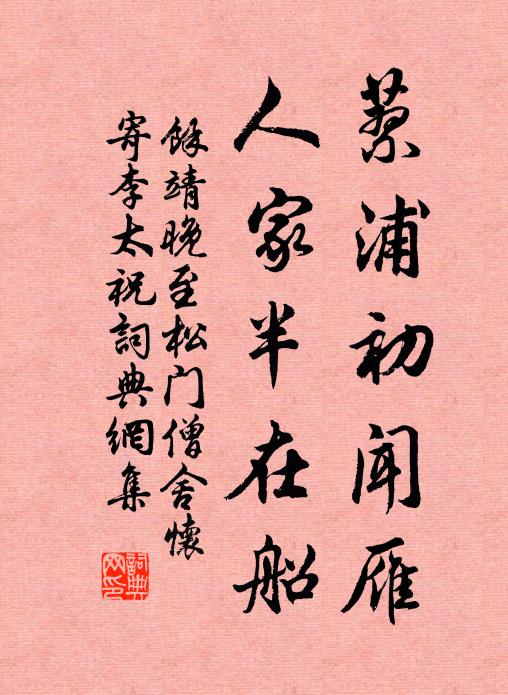 浦初闻雁
人家半在船
餘靖晚至松门僧舍懷
寄李太祝詞典網集
詞典
网印